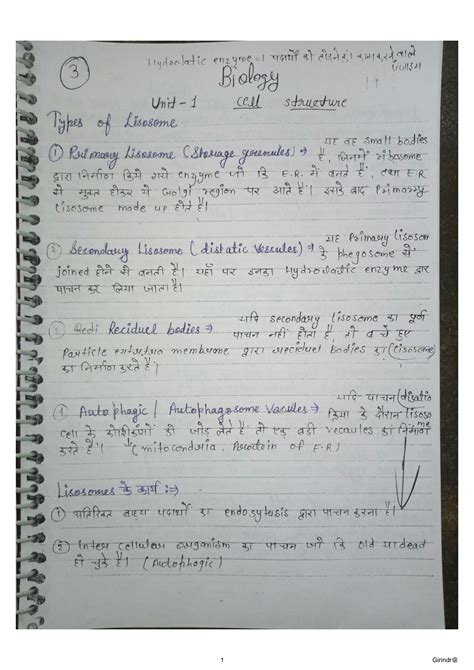 Hydrolatic enzyme = पदार्थों को तोड़ने का काम करने वाले
एंजाइम
3
Biology
Unit - 1 cell structure
Types of Lisosome
① Primary Lisosome (Storage greenules) ⇒ यह वह small bodies
है, जिनमें राibosome
द्वारा निर्माण किये गये enzyme जो कि E.R. में बनते हैं, तथा E.R
से मुक्त होकर ये Golgi region पर आते हैं। इसके बाद Primary
Lisosome made up होते हैं।
② Secondary Lisosome (distatic vescules) ⇒ यह Primary lisosom
के phegosome से
joined होने से बनती है। यहाँ पर इनका Hydrolatic enzyme द्वारा
पाचन कर लिया जाता है।
Reciduel bodies ⇒ यदि secondary lisosome का पूर्ण
पाचन नहीं होता है, तो बचे हुए
Particle membrane द्वारा reciduel bodies का (lisosome)
का निर्माण करते हैं।
Autophagic / Autophagosome Vacules → यदि पाचन (disatio
क्रिया के दौरान lisoso
me
cell के कोशिकांगों को जोड़ लेते हैं तो एक बड़ी vecaules का निर्माण
करते हैं। (mitocondria, Parotein of E.R)
Lisosomes के कार्य :-
① अतिरिक्त वाह्य पदार्थों का endosytosis द्वारा पाचन करना है।
② Inter cellular organism का पाचन जो कि old या dead
हो चुके हैं। (Autophogic)
1
Girindr@